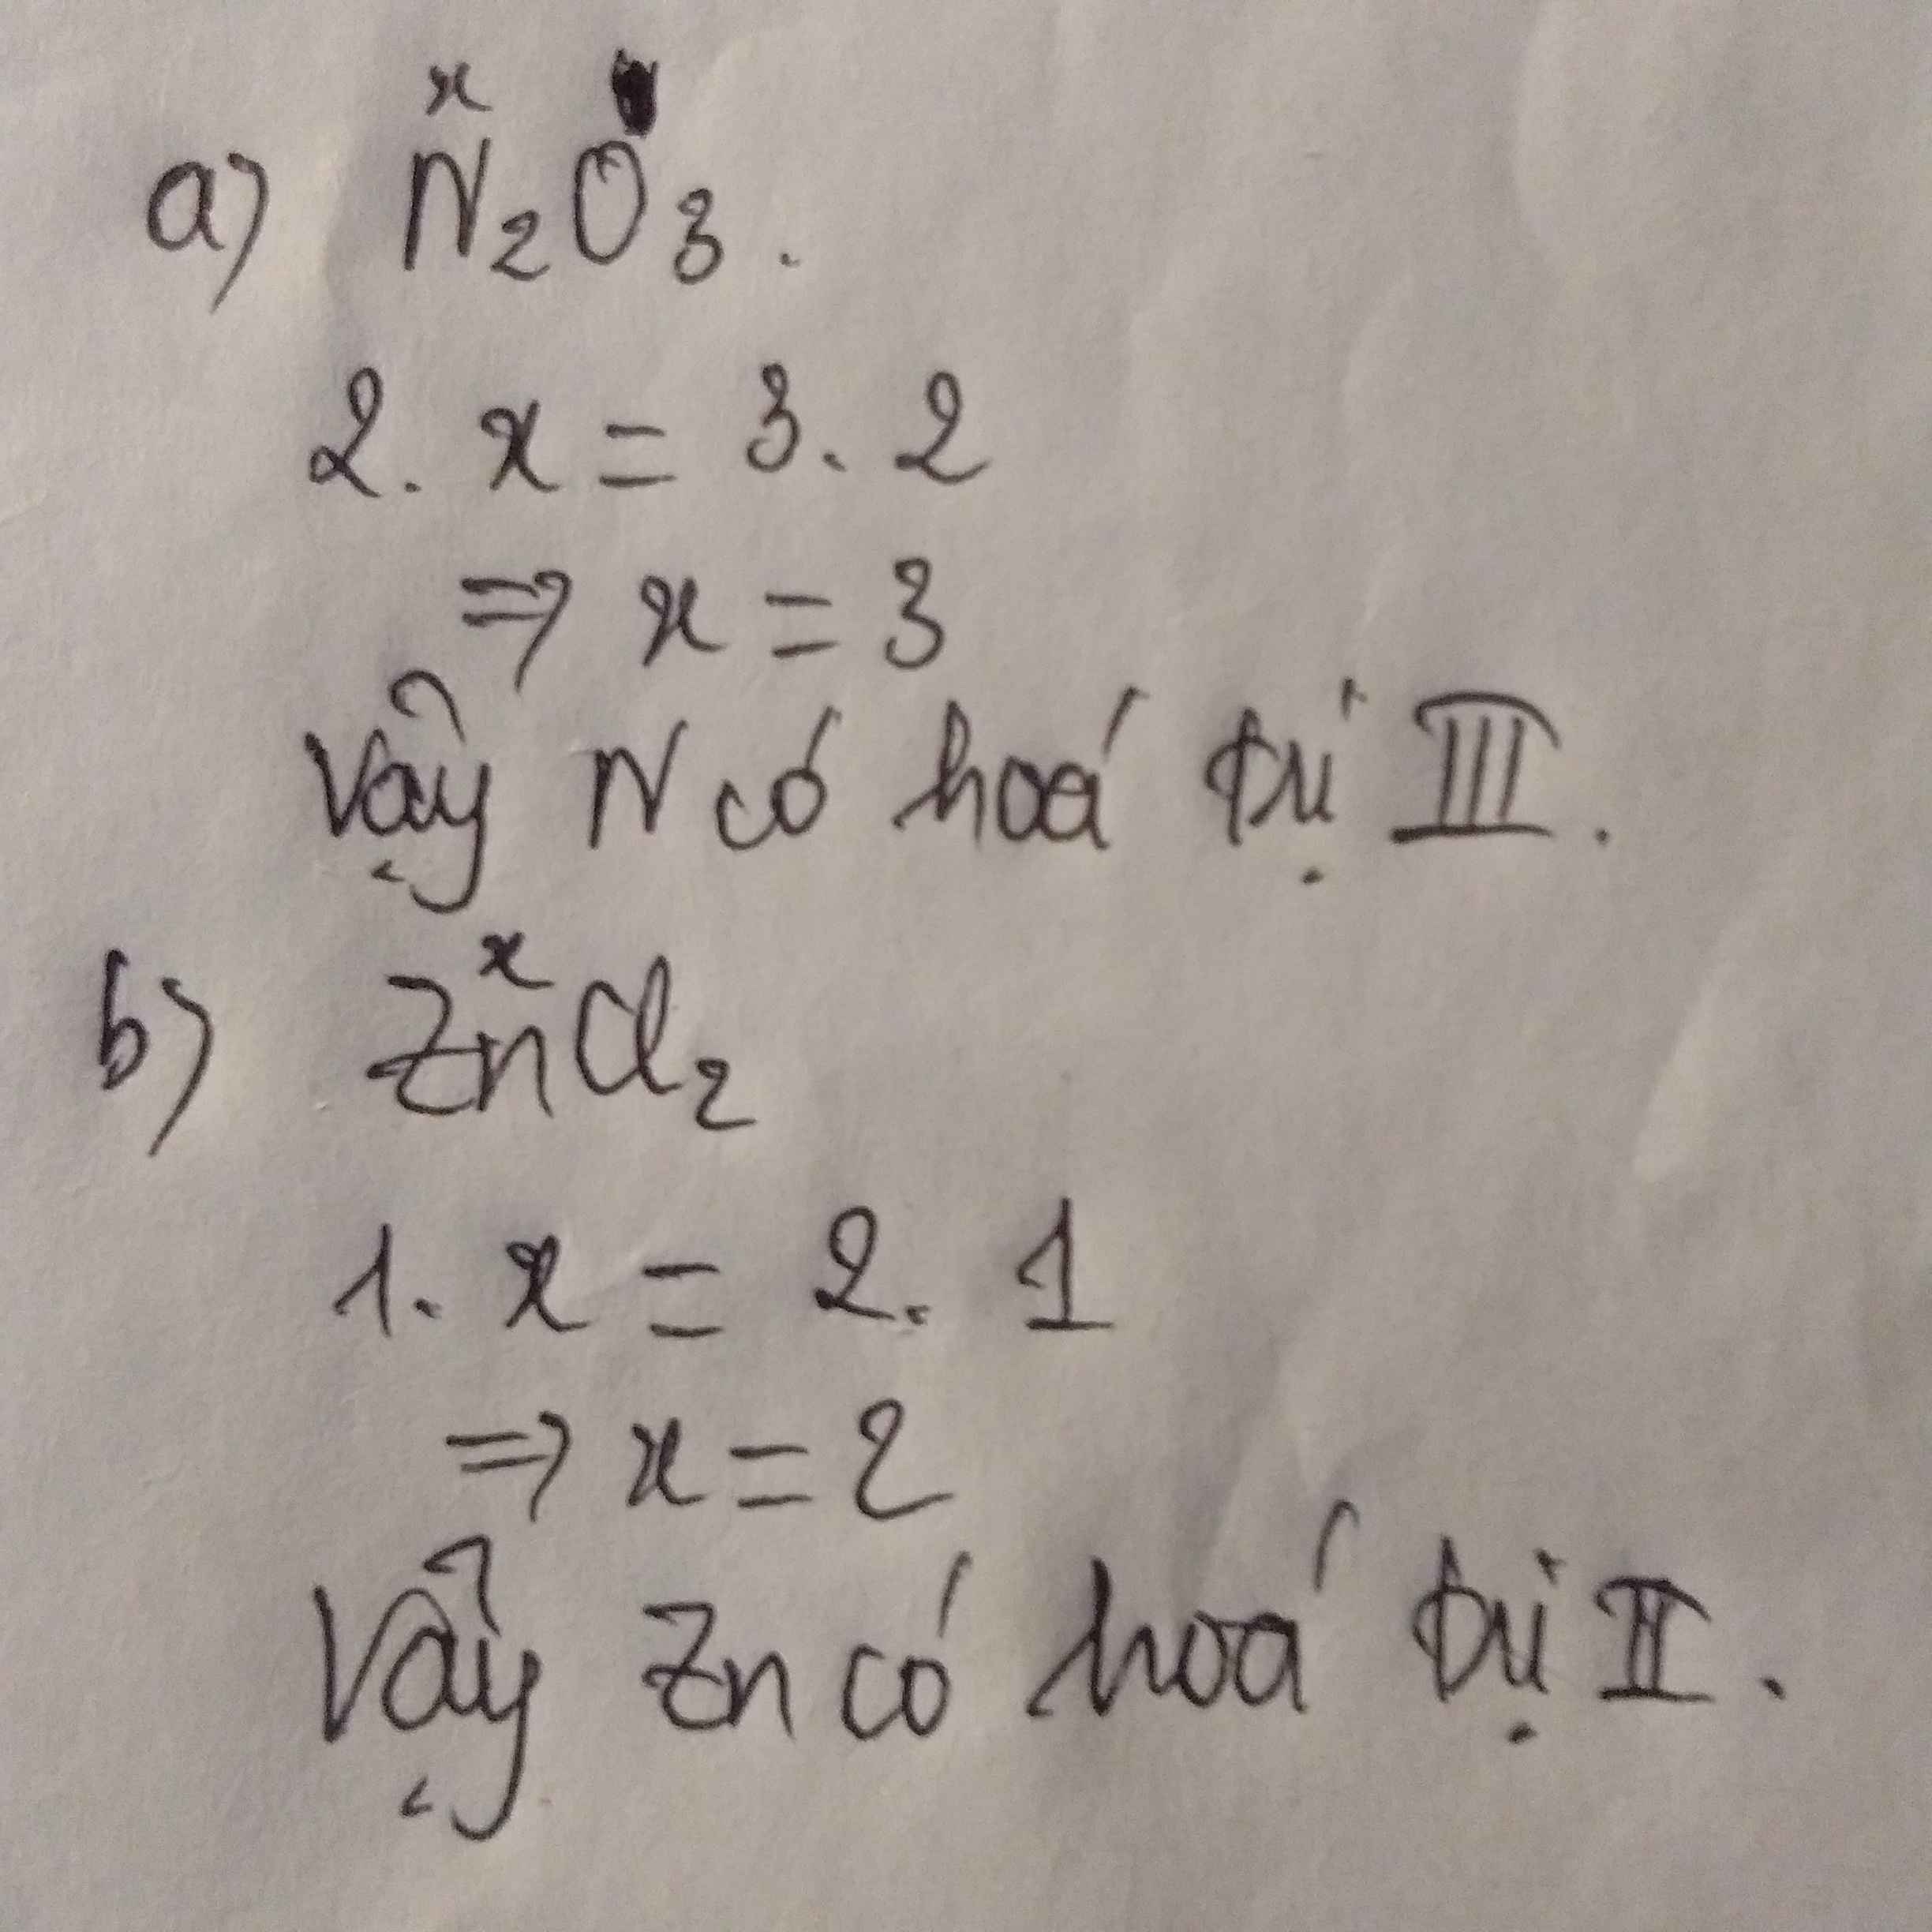 x
a) N₂O₃.
2. x = 3. 2
⇒ x = 3
Vậy N có hoá trị III.
x
b) ZnCl₂
1. x = 2. 1
⇒ x = 2
Vậy Zn có hoá trị II.